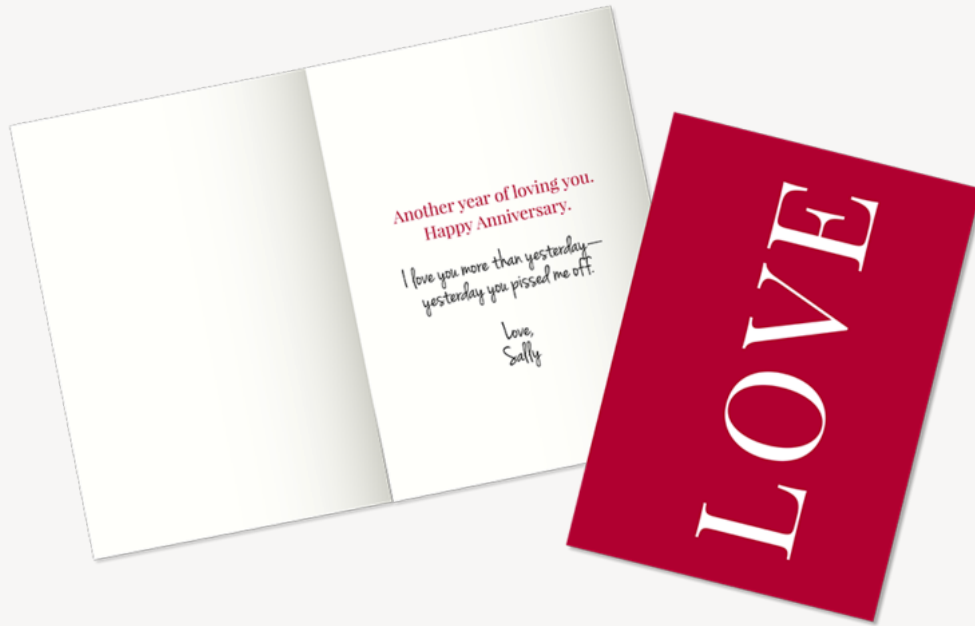 Another year of loving you.
Happy Anniversary.
I love you more than yesterday—
yesterday you pissed me off.
Love,
Sally
LOVE